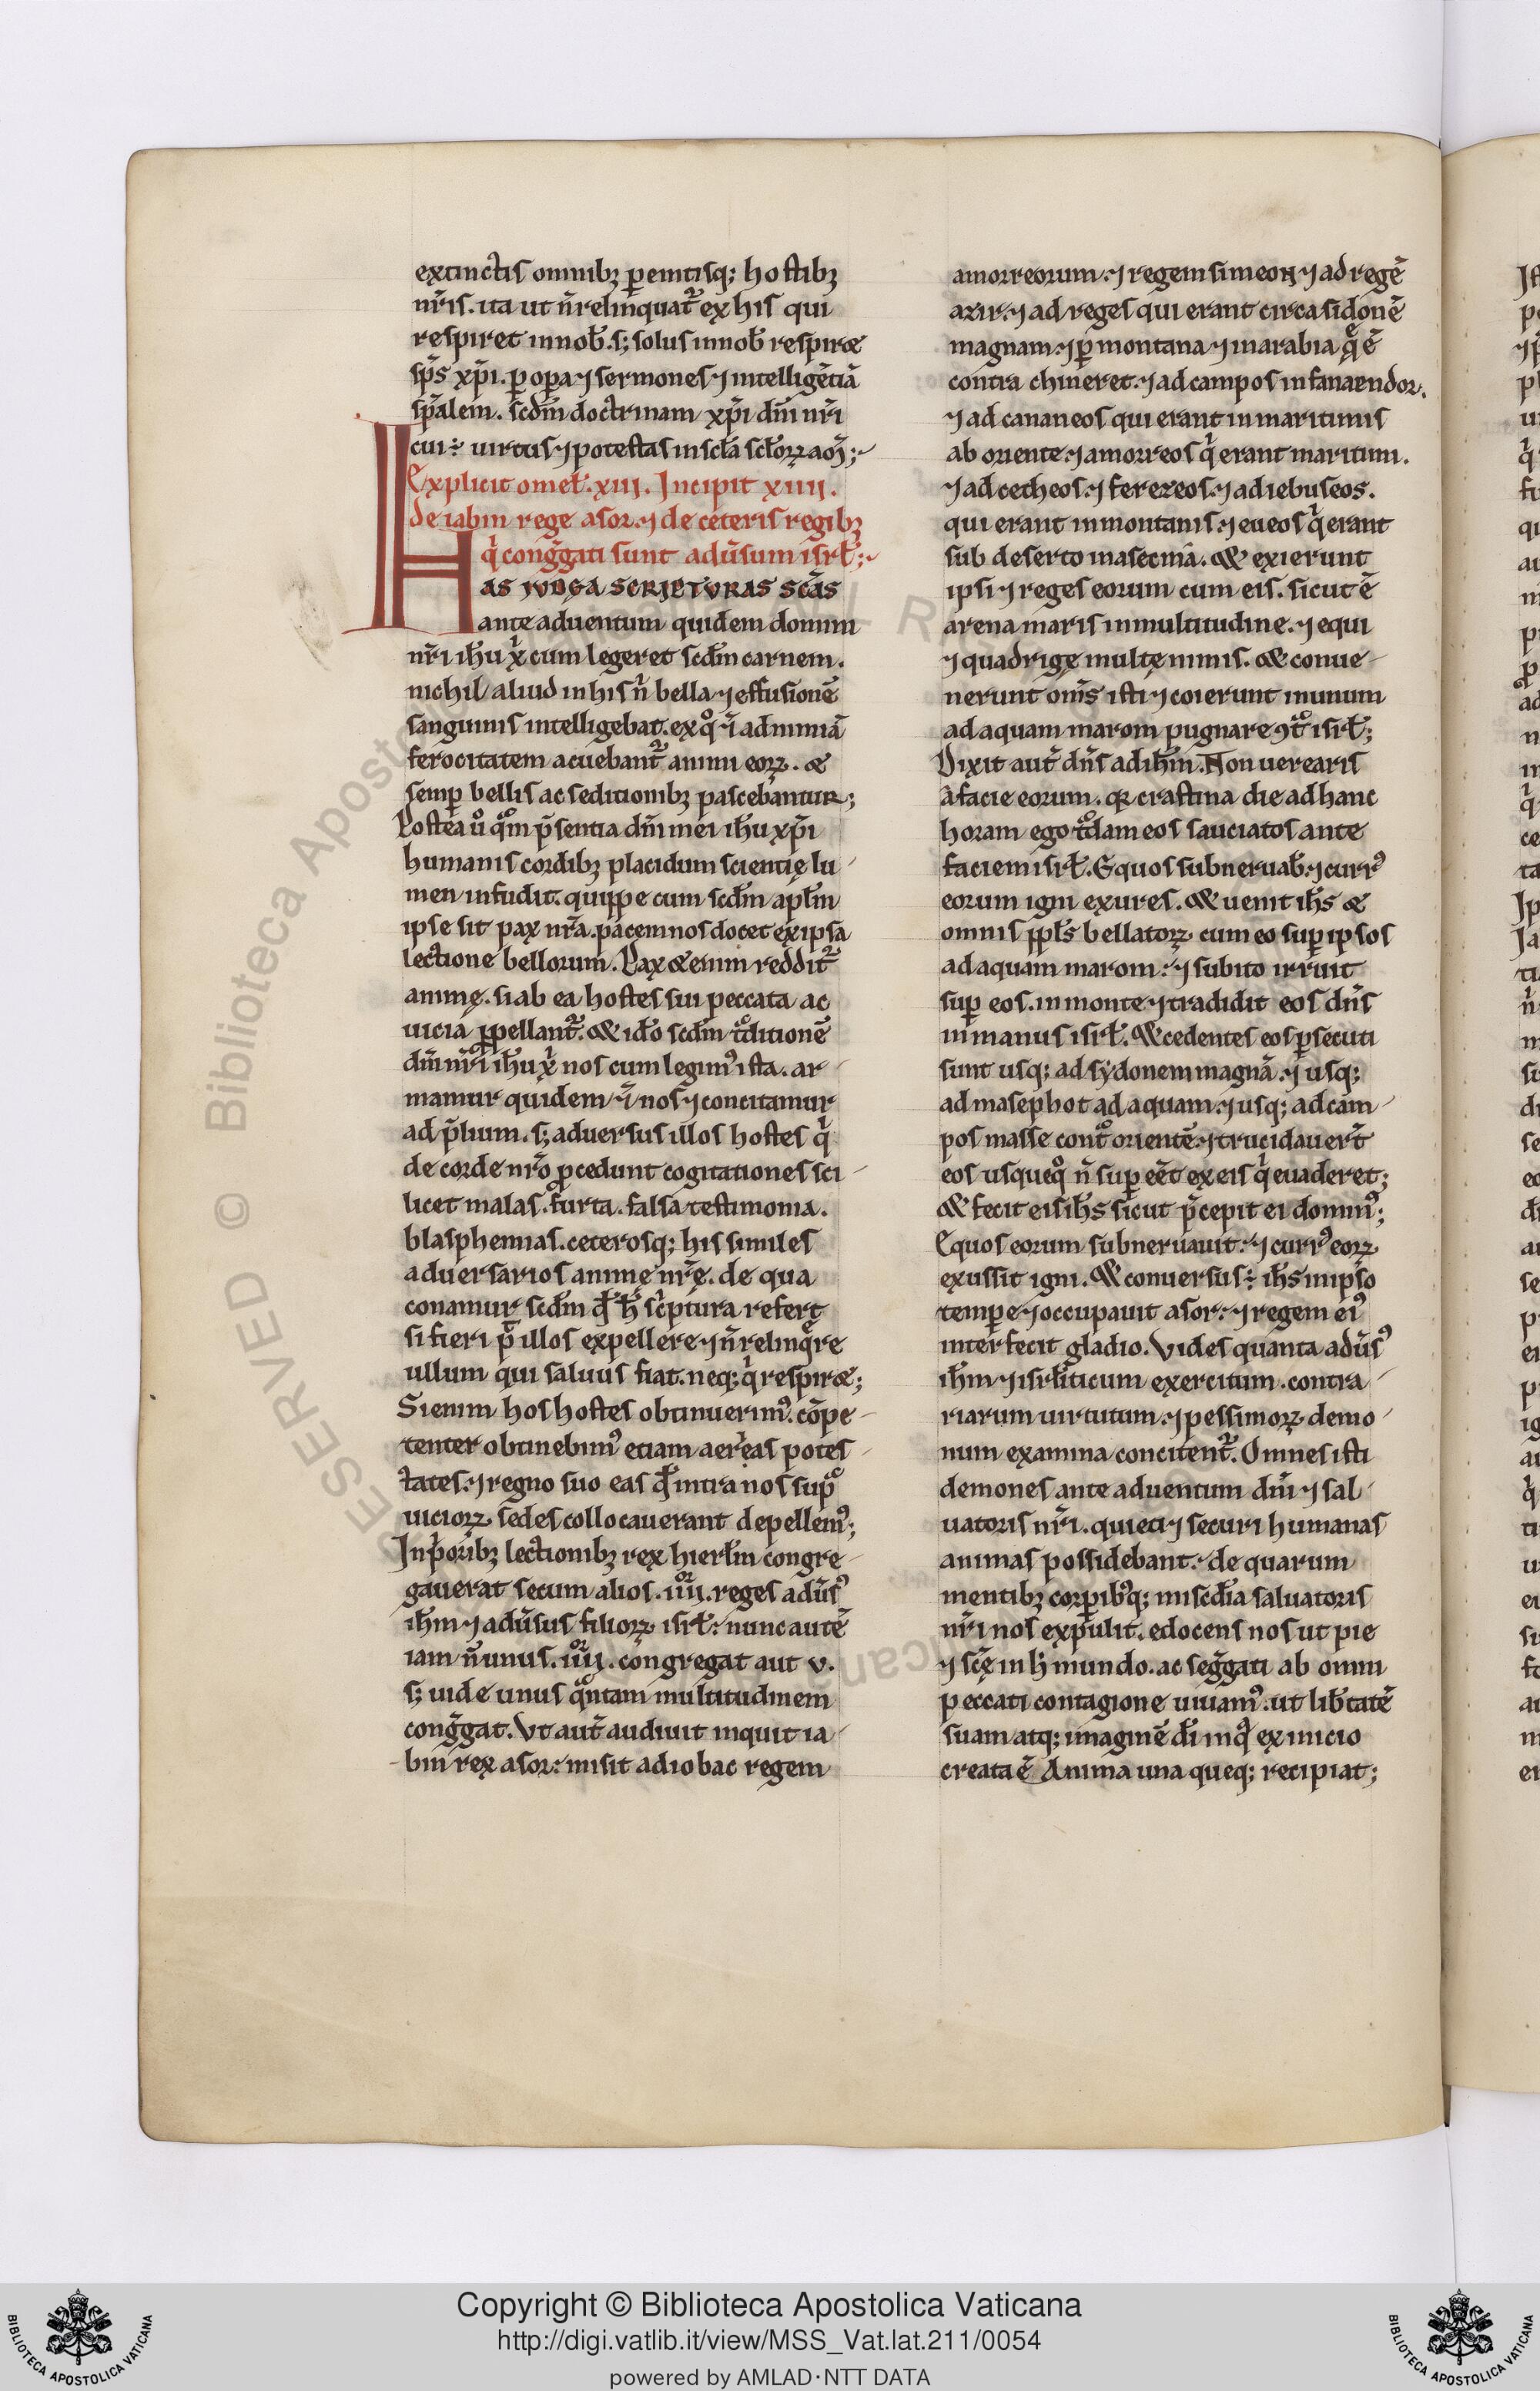 extinctis omnibꝫ ꝑemtisq; hostibꝫ
nr̃is. ita ut ñ relinquat᷑ ex his qui
respiret in nob̃. s; solus in nob̃ respiræ
sp̃s xp̃i. ꝑ oꝑa ⁊ sermones ⁊ intelligẽtiã
sp̃alem. sc̃dm doctrinam xp̃i dñi nr̃i
cui ÷ uirtus ⁊ potestas in scl̃a scl̃oꝝ am̃;
Explicit omel̃. xiii. Incipit xiiii.
de iabin rege asor. ⁊ de ceteris regibꝫ
q̇ congg̃ati sunt adũsum isrl̃;
HAS IUXTA SCRIPTURAS SCÃS
ante aduentum quidem domini
nr̃i ih̃u x̃ cum legeret sc̃dm carnem.
nichil aliud in his ñ bella ⁊ effusionẽ
sanguinis intelligebat. ex q̊ ⁊ ad nimiã
ferocitatem acuebant᷑ animi eoꝝ. æ
semꝑ bellis ac seditionibꝫ pascebantur;
Postea ů q̊m p̃sentia dñi mei ih̃u xp̃i
humanis cordibꝫ placidum scientię lu
men infudit. quippe cum sc̃dm apl̃m
ipse sit pax nr̃a. pacem nos docet ex ipsa
lectione bellorum. Pax æenim reddit᷑
animę. si ab ea hostes sui peccata ac
uicia ꝓpellant᷑. & ido̊ sc̃dm t̊ditionẽ
dñi nr̃i ih̃u x̃ nos cum legimꝰ ista. ar
mamur quidem ⁊ nos ⁊ concitamur
ad p̃lium. s; aduersus illos hostes q̇
de corde nr̃o ꝓcedunt cogitationes sci
licet malas. furta. falsa testimonia.
blasphemias. ceterosq; his similes
aduersarios animę nr̃ę. de qua
conamur sc̃dm qd̃ h̃ sc̃ptura refert
si fieri p̃t illos expellere ⁊ ñ relinq̃re
ullum qui saluus fiat. neq; q̇ respiræ;
Si enim hos hostes obtinuerimꝰ. cõpe
tenter obtinebimꝰ etiam aereas potes
tates. ⁊ regno suo eas qd̃ intra nos supͦ
uicioꝝ sedes collocauerant depellemꝰ;
In p̃oribꝫ lectionibꝫ rex hierl̃m congre
gauerat secum alios. iiiiͦʳ. reges adũsꝰ
ih̃m ⁊ adũsus filioꝝ isrl̃. nunc autẽ
iam ñ unus. iiiiͦʳ. congregat aut v.
s; uide unus q̊ntam multitudinem
congg̃at. Vt aut̃ audiuit inquit ia
bin rex asor: misit ad iobac regem
amorreorum. ⁊ regem simeon ⁊ ad regẽ
azir. ⁊ ad reges qui erant circa sidonẽ
magnam. ⁊ ꝑ montana ⁊ in arabia q̃ ẽ
contra chineret. ⁊ ad campos in fanaendor.
⁊ ad cananeos qui erant in maritimis
ab oriente. ⁊ amorreos q̇ erant maritimi.
⁊ ad cetheos. ⁊ ferezeos. ⁊ ad iebuseos.
qui erant in montanis. ⁊ eueos q̇ erant
sub deserto in asecmã. & exierunt
ipsi ⁊ reges eorum cum eis. sicut ẽ
arena maris in multitudine. ⁊ equi
⁊ quadrigę multę nimis. & conue
nerunt om̃s isti ⁊ coierunt in unum
ad aquam marom pugnare ꝯt̊ isrl̃;
Dixit aut̃ dñs ad ih̃m. Non uerearis
a facie eorum. qꝛ crastina die ad hanc
horam ego t̊dam eos sauciatos ante
faciem isrl̃. Equos subneruab̃. ⁊ currꝰ
eorum igni exures. & uenit ih̃s æ
omnis ppl̃s bellatoꝝ cum eo suꝑ ipsos
ad aquam marom. ⁊ subito irruit
suꝑ eos. in monte ⁊ tradidit eos dñs
in manus isrl̃. & cedentes eos ꝑsecuti
sunt usq; ad sydonem magnã. ⁊ usq;
ad masephot ad aquam. ⁊ usq; ad cam
pos masse cont̊ orientẽ. ⁊ trucidauert̃
eos usqueqů ñ suꝑ eẽt ex eis q̇ euaderet;
& fecit eis ih̃s sicut p̃cepit ei dominꝰ;
Equos eorum subneruauit. ⁊ currꝰ eoꝝ
exussit igni. & conuersus ÷ ih̃s in ipso
tempe ⁊ occupauit asor. ⁊ regem eiꝰ
interfecit gladio. Vides quanta adũsꝰ
ih̃m ⁊ isrl̃iticum exercitum. contra
riarum uirtutum. ⁊ pessimoꝝ demo
num examina concitent᷑. Omnes isti
demones ante aduentum dñi ⁊ sal
uatoris nr̃i. quieti ⁊ securi humanas
animas possidebant. de quarum
mentibꝫ corꝑibꝰq; misc̃dia saluatoris
nr̃i nos expulit. edocens nos ut pie
⁊ sc̃ę in h̃ mundo. ac segg̃ati ab omni
peccati contagione uiuamꝰ. ut lib̃tatẽ
suam atq; imaginẽ di in q̃ ex inicio
creata ẽ Anima una queq; recipiat;
Copyright © Biblioteca Apostolica Vaticana
http://digi.vatlib.it/view/MSS_Vat.lat.211/0054
powered by AMLAD·NTT DATA
BIBLIOTECA APOSTOLICA VATICANA
BIBLIOTECA APOSTOLICA VATICANA